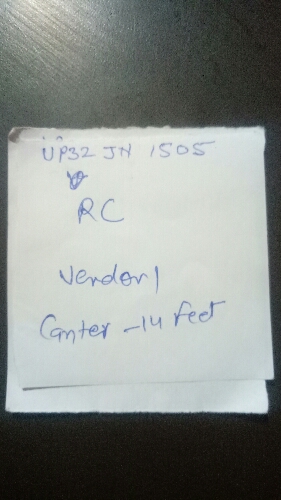 UP32 JN 1505
RC
Vendor1
Canter - 14 feet